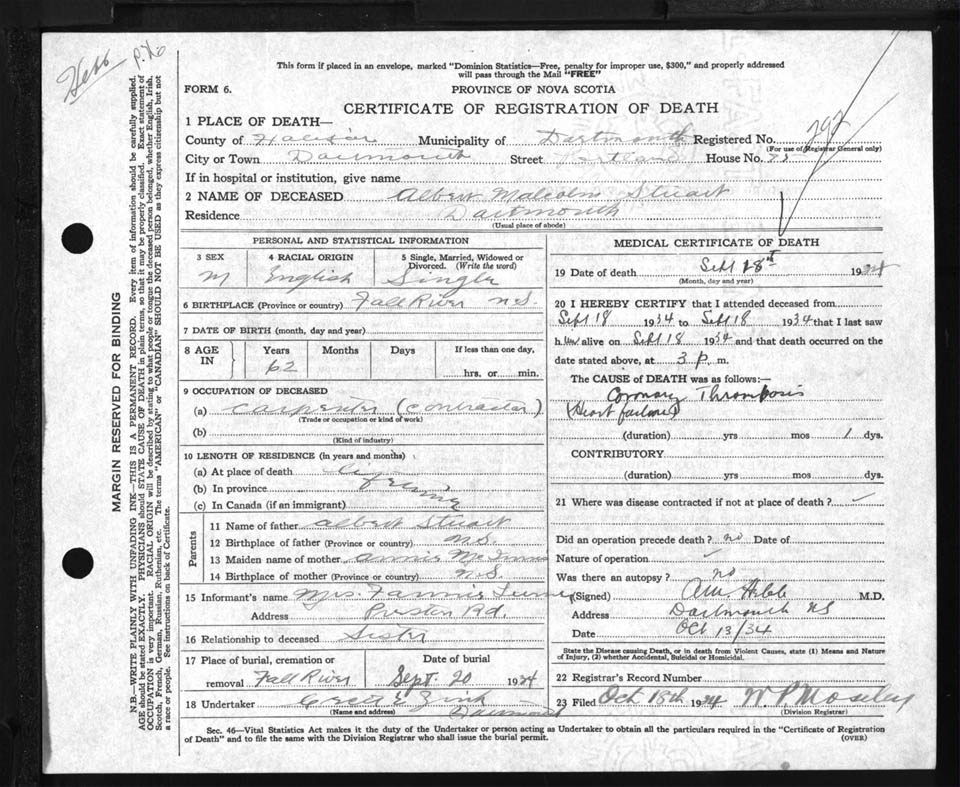 Hebb P. No
This form if placed in an envelope, marked "Dominion Statistics—Free, penalty for improper use, $300," and properly addressed
will pass through the Mail "FREE"
FORM 6.
PROVINCE OF NOVA SCOTIA
CERTIFICATE OF REGISTRATION OF DEATH
1 PLACE OF DEATH—
County of Halifax Municipality of Dartmouth Registered No. 292
(For use of Registrar General only)
City or Town Dartmouth Street Portland House No. 73
If in hospital or institution, give name
2 NAME OF DECEASED Albert Malcolm Stuart
Residence Dartmouth
(Usual place of abode)
PERSONAL AND STATISTICAL INFORMATION
3 SEX 4 RACIAL ORIGIN 5 Single, Married, Widowed or
Divorced. (Write the word)
M English Single
6 BIRTHPLACE (Province or country) Fall River N.S.
7 DATE OF BIRTH (month, day and year)
8 AGE IN Years Months Days If less than one day,
62 hrs. or min.
9 OCCUPATION OF DECEASED
(a) Carpenter (Contractor)
(Trade or occupation or kind of work)
(b)
(Kind of industry)
10 LENGTH OF RESIDENCE (in years and months)
(a) At place of death Lifetime
(b) In province
(c) In Canada (if an immigrant)
Parents
11 Name of father Albert Stuart
12 Birthplace of father (Province or country) N.S.
13 Maiden name of mother Annie
14 Birthplace of mother (Province or country) N.S.
15 Informant's name Mrs. Fannie
Address Preston Rd.
16 Relationship to deceased Sister
17 Place of burial, cremation or Date of burial
removal Fall River Sept. 20 1934
18 Undertaker
(Name and address) Dartmouth
MEDICAL CERTIFICATE OF DEATH
19 Date of death Sept 18th 1934
(Month, day and year)
20 I HEREBY CERTIFY that I attended deceased from
Sept 18 1934 to Sept 18 1934 that I last saw
h. im alive on Sept 18 1934 and that death occurred on the
date stated above, at 3 p. m.
The CAUSE OF DEATH was as follows:—
Coronary Thrombosis
(Heart failure)
(duration) yrs mos 1 dys.
CONTRIBUTORY
(duration) yrs mos dys.
21 Where was disease contracted if not at place of death?
Did an operation precede death? no Date of
Nature of operation
Was there an autopsy? no
(Signed) M.D.
Address Dartmouth NS
Date Oct 13/34
State the Disease causing Death, or in death from Violent Causes, state (1) Means and Nature
of Injury, (2) whether Accidental, Suicidal or Homicidal.
22 Registrar's Record Number
23 Filed Oct 18th 1934
(Division Registrar)
Sec. 46—Vital Statistics Act makes it the duty of the Undertaker or person acting as Undertaker to obtain all the particulars required in the "Certificate of Registration
of Death" and to file the same with the Division Registrar who shall issue the burial permit.
(OVER)
MARGIN RESERVED FOR BINDING
N.B.—WRITE PLAINLY WITH UNFADING INK—THIS IS A PERMANENT RECORD. Every item of information should be carefully supplied.
AGE should be stated EXACTLY. PHYSICIANS should STATE CAUSE OF DEATH in plain terms, so that it may be properly classified. Exact statement of
OCCUPATION is very important. RACIAL ORIGIN will be described by stating to what people or tongue the deceased person belonged, whether English, Irish,
Scotch, French, German, Russian, Ruthenian, etc. The terms "AMERICAN" or "CANADIAN" SHOULD NOT BE USED as they express citizenship but not
a race or people. See instructions on back of Certificate.